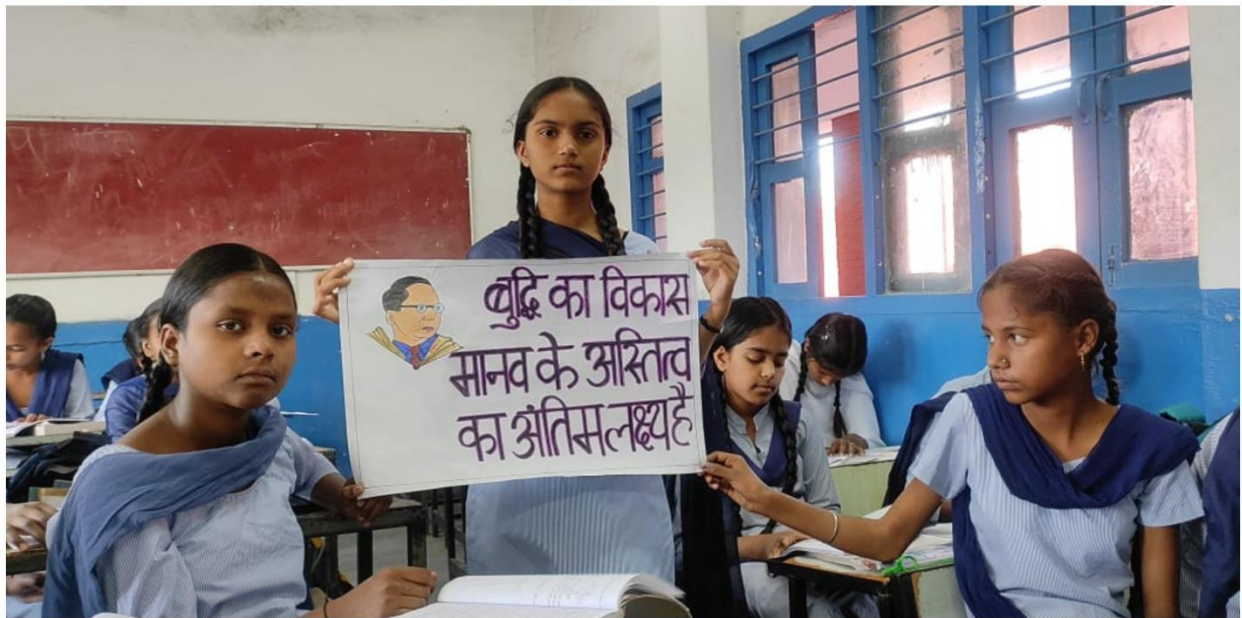 बुद्धि का विकास
मानव के अस्तित्व
का अंतिम लक्ष्य है